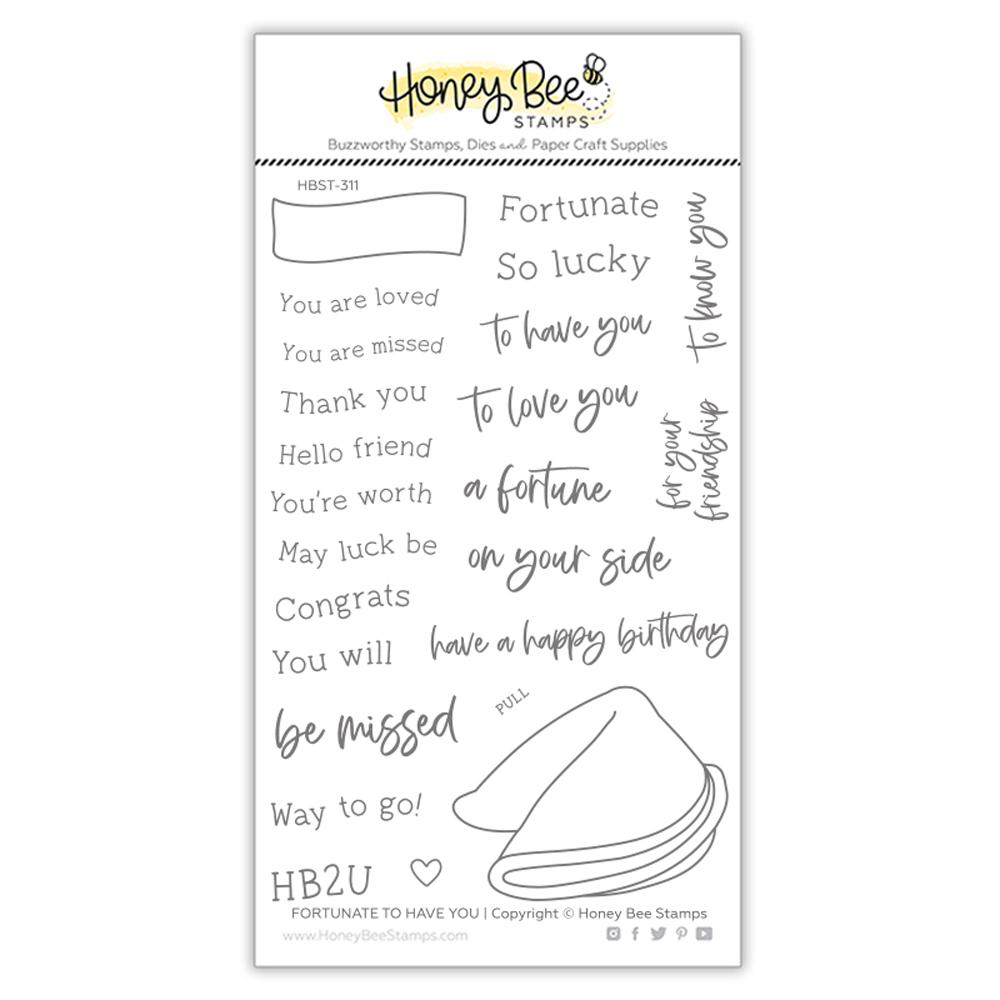 Honey Bee
STAMPS
Buzzworthy Stamps, Dies and Paper Craft Supplies
HBST-311
Fortunate
So lucky
to know you
You are loved
You are missed
to have you
Thank you
to love you
for your
friendship
Hello friend
You're worth
a fortune
May luck be
on your side
Congrats
You will
have a happy birthday
be missed
PULL
Way to go!
HB2U
FORTUNATE TO HAVE YOU | Copyright © Honey Bee Stamps
www.HoneyBeeStamps.com